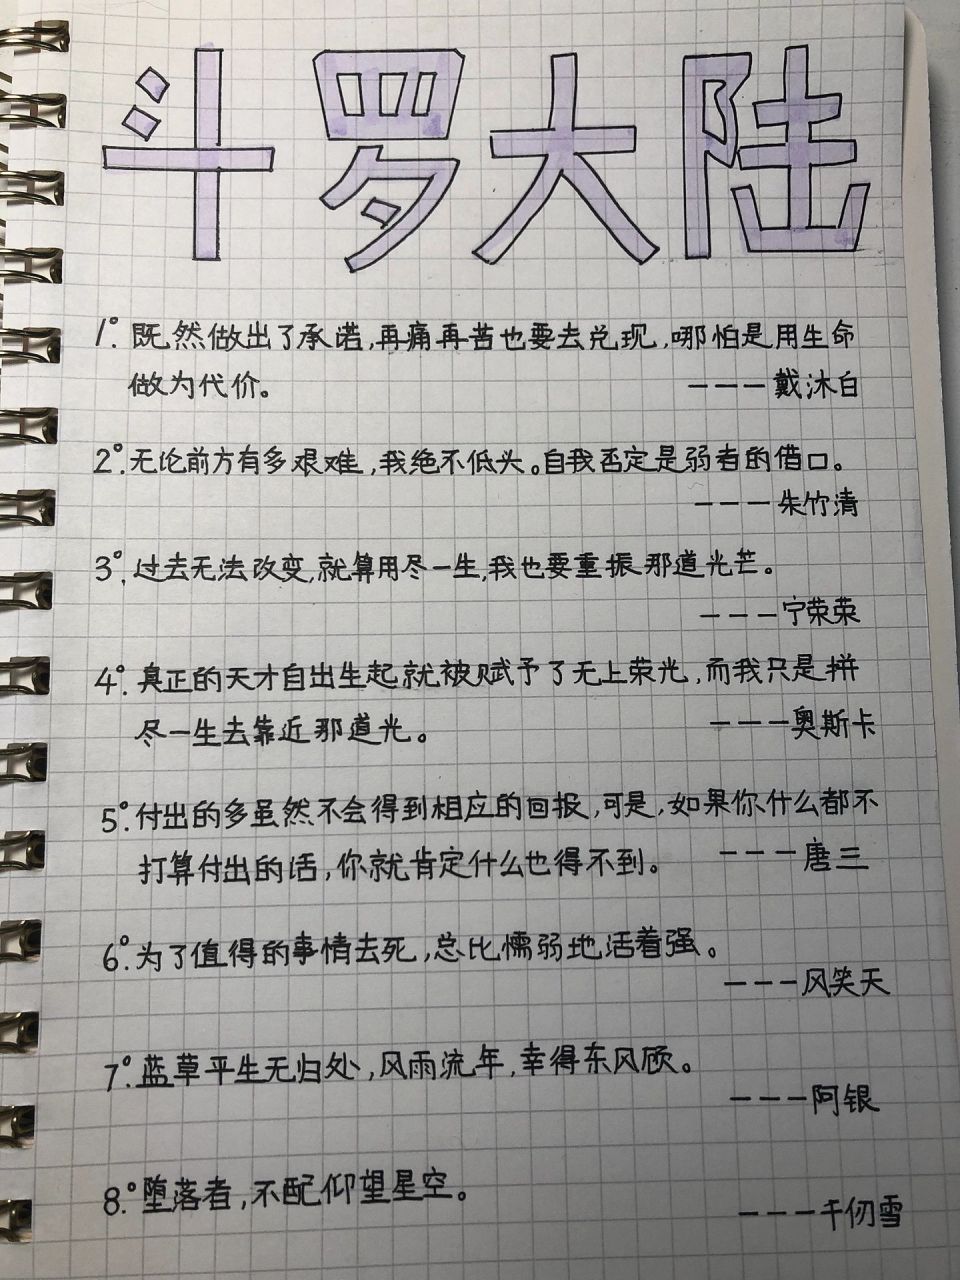 斗罗大陆
1°. 既然做出了承诺,再痛再苦也要去兑现,哪怕是用生命
做为代价。 ---戴沐白
2°. 无论前方有多艰难,我绝不低头。自我否定是弱者的借口。
---朱竹清
3°. 过去无法改变,就算用尽一生,我也要重振那道光芒。
---宁荣荣
4°. 真正的天才自出生起就被赋予了无上荣光,而我只是拼
尽一生去靠近那道光。 ---奥斯卡
5°. 付出的多虽然不会得到相应的回报,可是,如果你什么都不
打算付出的话,你就肯定什么也得不到。 ---唐三
6°. 为了值得的事情去死,总比懦弱地活着强。
---风笑天
7°. 蓝草平生无归处,风雨流年,幸得东风顾。
---阿银
8°. 堕落者,不配仰望星空。
---千仞雪